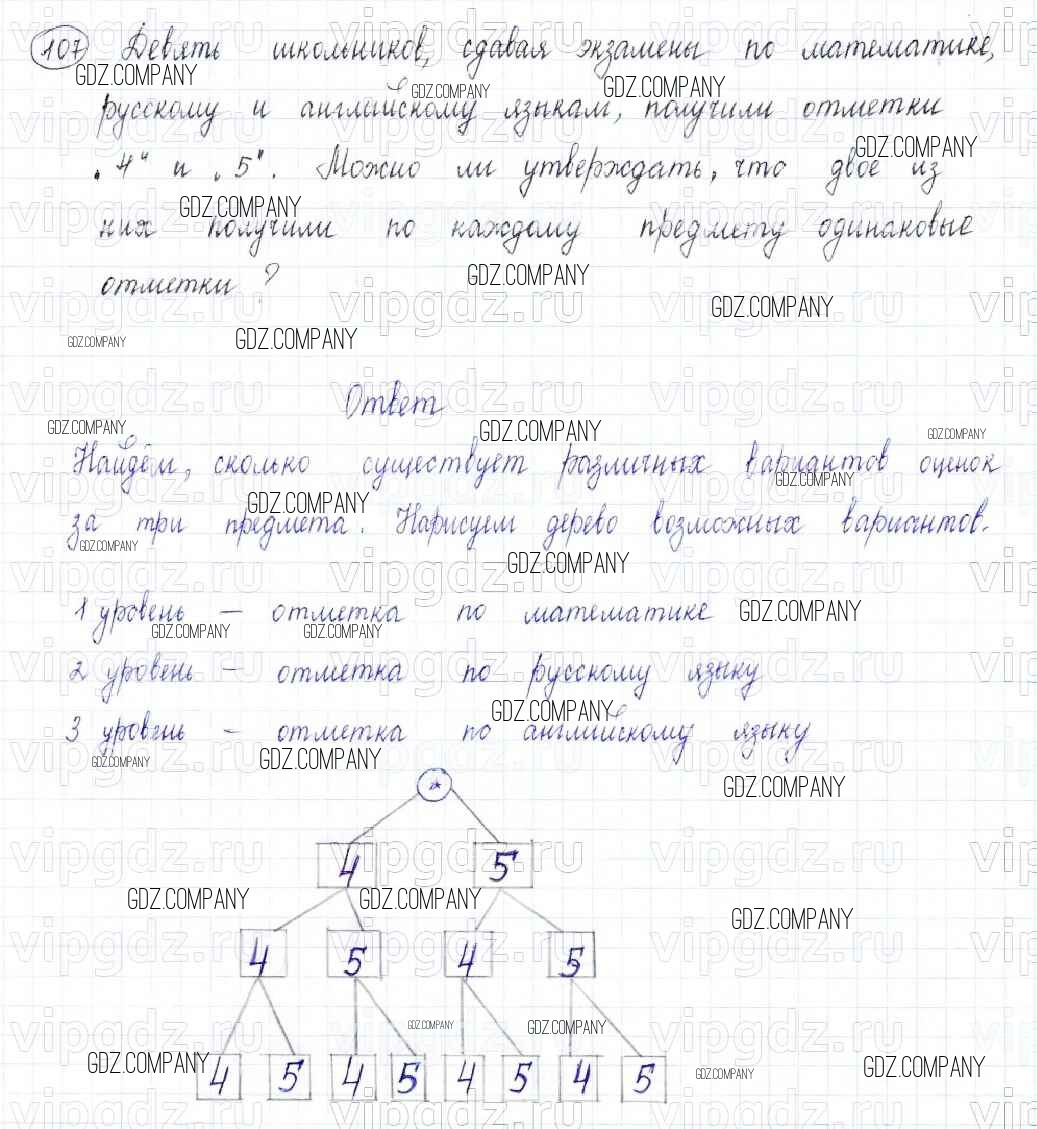 107 Девять школьников, сдавая экзамены по математике,
русскому и английскому языкам, получили отметки
„4" и „5". Можно ли утверждать, что двое из
них получили по каждому предмету одинаковые
отметки?
Ответ
Найдём, сколько существует различных вариантов оценок
за три предмета. Нарисуем дерево возможных вариантов.
1 уровень – отметка по математике
2 уровень – отметка по русскому языку
3 уровень – отметка по английскому языку
*
4 5
4 5 4 5
4 5 4 5 4 5 4 5
GDZ.COMPANY
vipgdz.ru